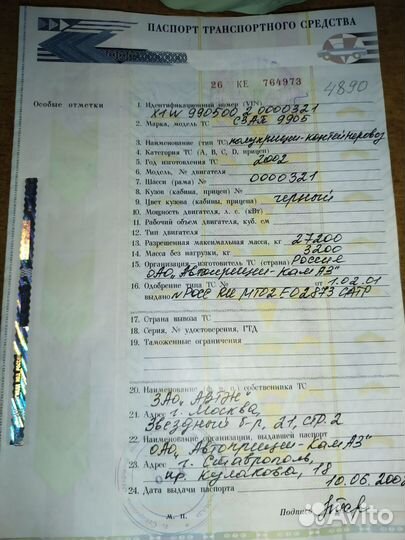 ПАСПОРТ ТРАНСПОРТНОГО СРЕДСТВА
26 КЕ 764973
4890
Особые отметки
1. Идентификационный номер (VIN) X1W 990500 2 0000321
2. Марка, модель ТС СЗАП 9905
3. Наименование (тип ТС) полуприцеп-контейнеровоз
4. Категория ТС (A, B, C, D, прицеп)
5. Год изготовления ТС 2002
6. Модель, № двигателя
7. Шасси (рама) № 0000321
8. Кузов (кабина, прицеп) №
9. Цвет кузова (кабины, прицепа) черный
10. Мощность двигателя, л. с. (кВт)
11. Рабочий объем двигателя, куб. см
12. Тип двигателя
13. Разрешенная максимальная масса, кг 27200
14. Масса без нагрузки, кг 3200
15. Организация-изготовитель ТС (страна) Россия
ОАО „Автоприцеп-КамАЗ"
16. Одобрение типа ТС № от 1.02.01
выдано № РОСС RU МТ02 Е02873 САТР
17. Страна вывоза ТС
18. Серия, № удостоверения, ГТД
19. Таможенные ограничения
20. Наименование (ф. и. о.) собственника ТС
ЗАО „
21. Адрес г. Москва,
Звездный б-р, 21, стр. 2
22. Наименование организации, выдавшей паспорт
ОАО „Автоприцеп-КамАЗ"
23. Адрес г. Ставрополь
пр. Кулакова, 18
24. Дата выдачи паспорта 10.06.200
М. П.
Подпись
Avito